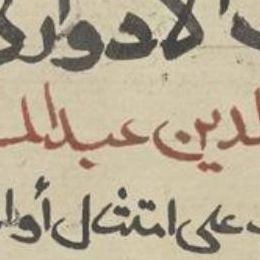 الادوار
لدين عبدالم
على امتثال أوا